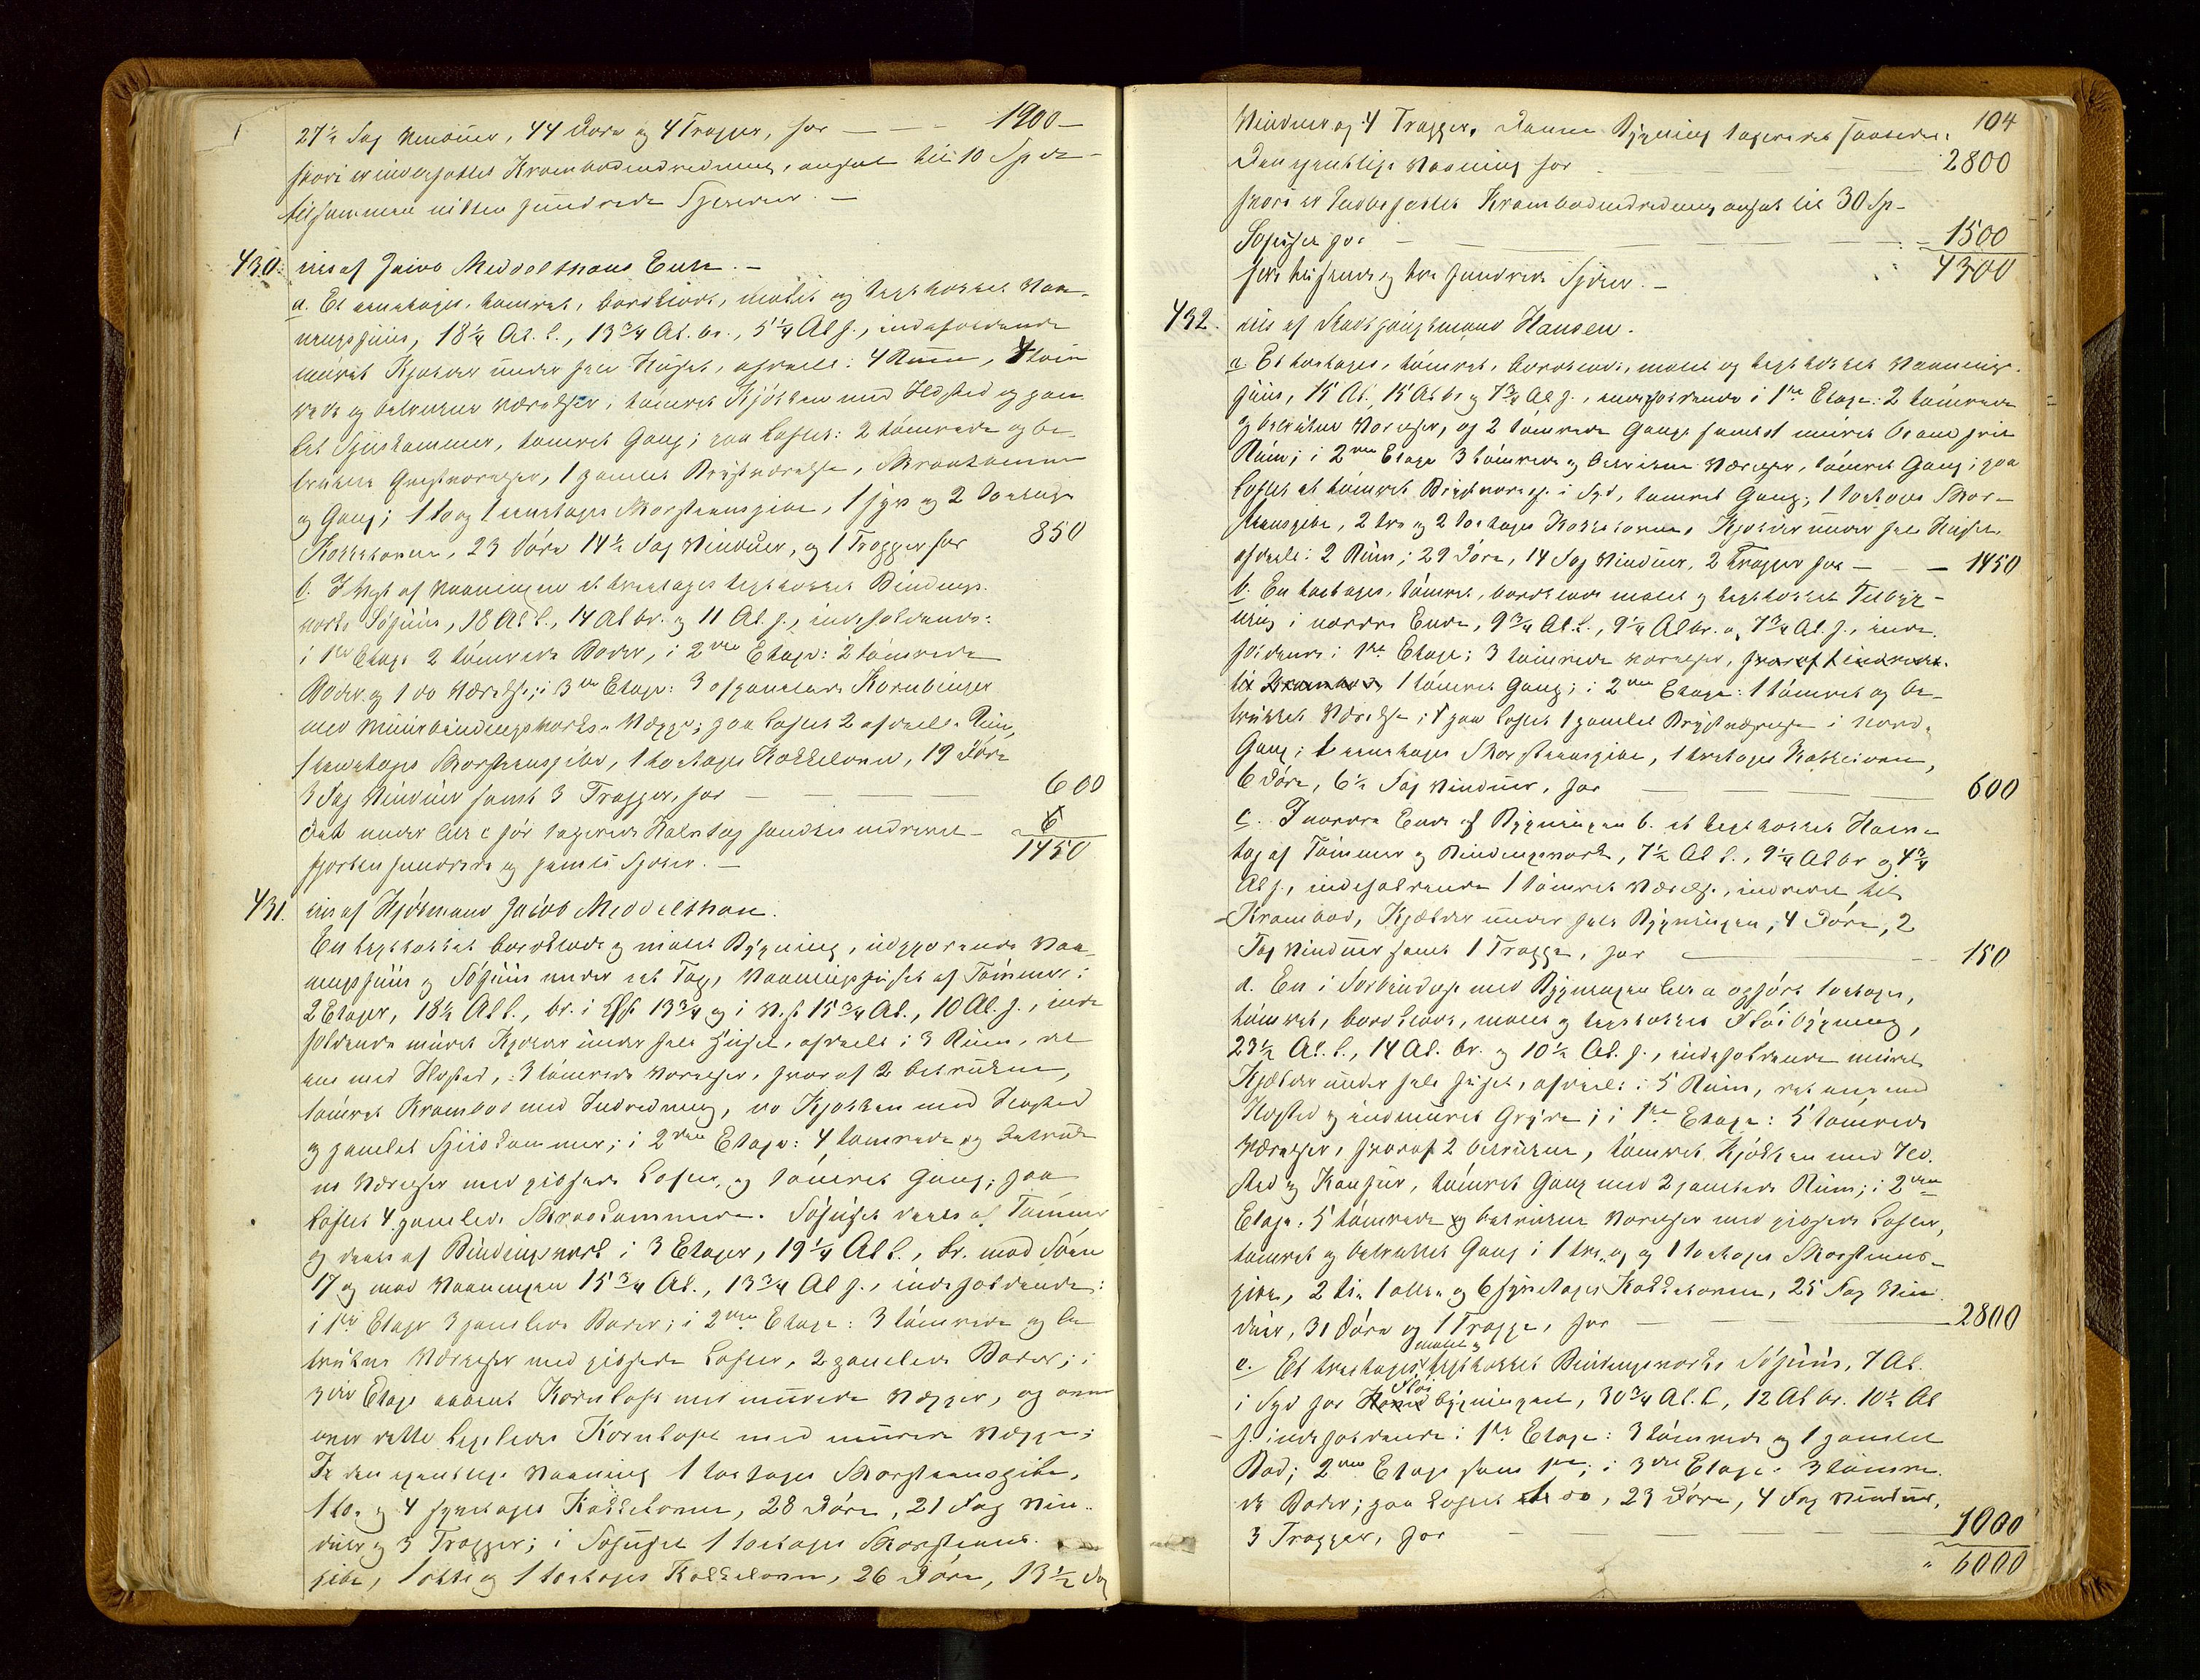 27½ Fag Vinduer, 44 Døre og 4 Trapper, for — — — 1900 —
hvori er indbefattet Krambodindredning, ansat til 10 Spd
tilsammen nitten hundrede Species. —
430. eies af Jacob Meddelthons Enke. —
a. Et eenetages, tømret, bordklædt, malet og teglhængt Vaa-
ningshuus, 18¼ Al. l., 13¾ Al. br., 5¼ Al h., indeholdende
muret Kjelder under hele Huset, afdeelt i 4 Rum, 4 tøm
rede og betrukne Værelser, tømret Kjøkken med Ildsted og pan
let Spiiskammer, tømret Gang; paa Loftet: 2 tømrede og be-
trukne Qvistværelser, 1 panelet Brystværelse, Skraakammer
og Gang; 1 to og 1 eenetages Skorsteenspibe, 1 fyr og 2 toetages
Kakkelovne, 23 Døre 14½ Fag Vinduer, og 1 Trappe for 850
b. I Vest af Vaaningen et treetages teglhængt Bindings-
værks Søhuus, 18 Al l., 14 Al br. og 11 Al. h., indeholdende:
i 1ste Etage 2 tømrede Boder, i 2den Etage: 2 tømrede
Boder og 1 do Værelse; i 3die Etage: 3 afpanelede Kornbinger
med Muurbindingsværks Vægge; paa Loftet 2 afdeelte Rum,
1 eenetages Skorsteenspibe, 1 toetages Kakkelovn, 19 Døre
3 Fag Vinduer samt 3 Trapper, for — — — 600
Det under Litr c før taxerede Halvtag findes nedrevet —
1450
fjorten hundrede og femti Spdler. —
431. eies af Kjøbmand Jacob Meddelthon.
En teglhængt bordklædt og malet Bygning, udgjørende Vaa-
ningshuus og Søhuus under eet Tag, Vaaningshuset af Tømmer i
2 Etager, 18½ Al l., br. i Øst 13¾ og i Vest 15¾ Al., 10 Al. h., inde
holdende muret Kjelder under hele Huset, afdeelt i 3 Rum, det
ene med Ildsted, 3 tømrede Værelser, hvoraf 2 betrukne,
tømret Krambod med Indredning, do Kjøkken med Ildsted
og panelet Spiiskammer; i 2den Etage: 4 tømrede og betruk
ne Værelser med gibsede Lofter, og tømret Gang; paa
Loftet 4 panelede Skraakammere. Søhuset deels af Tømmer
og deels af Bindingsværk i 3 Etager, 19¼ Al l., br. mod Søen
17 og mod Vaaningen 15¾ Al., 13¾ Al h., indeholdende:
i 1ste Etage 3 panelede Boder; i 2den Etage: 3 tømrede og be
trukne Værelser med gibsede Lofter, 2 panelede Boder; i
3die Etage aabent Kornloft med murede Vægger, og oven
over dette ligeledes Kornloft med murede Vægge;
I den egentlige Vaaning 1 toetages Skorsteenspibe,
1 to og 4 fyretages Kakkelovne, 28 Døre, 21 Fag Vin-
duer og 3 Trapper; i Søhuset 1 toetages Skorsteens-
pibe, 1 otte og 1 toetages Kakkelovn, 26 Døre, 13½ Fag
104
Vinduer og 4 Trapper. Denne Bygning taxeredes saaledes:
Den egentlige Vaaning for — 2800
hvori er indbefattet Krambodindredning ansat til 30 Sp —
Søhuset for — — — 1500
fire tusinde og tre hundrede Spdler. — 4300
432. eies af Stadshauptmand Hansen.
a. Et toetages, tømret, bordklædt, malet og teglhængt Vaanings-
huus, 15 Al., 15 Al br og 7¾ Al h., indeholdende i 1ste Etage: 2 tømrede
og betrukne Værelser, og 2 tømrede Gange samt et muret brandfrit
Rum; i 2den Etage 3 tømrede og betrukne Værelser, tømret Gang; paa
Loftet et tømret Brystværelse i Syd, tømret Gang, 1 toetages Skor-
steenspibe, 2 tre og 2 toetages Kakkelovne, Kjelder under hele Huset
afdeelt i 2 Rum; 29 Døre, 14 Fag Vinduer, 2 Trapper for — — 1450
b. En toetages, tømret, bordklædt malet og teglhængt Tilbyg-
ning i nordre Ende, 9¾ Al. l., 9¼ Al br. og 7¾ Al. h., inde
holdende i 1ste Etage; 3 tømrede Værelser, hvoraf 1 indredet
til Krambod, 1 tømret Gang; i 2den Etage: 1 tømret og be-
trukket Værelse; paa Loftet 1 panelet Brystværelse i Nord,
Gang; 1 eenetages Skorsteenspibe, 1 treetages Kakkelovn,
6 Døre, 6½ Fag Vinduer, for — — 600
c. I nordre Ende af Bygningen b. et teglhængt Halv-
tag af Tømmer og Bindingsværk, 7½ Al l., 9¼ Al br og 4¾
Al h., indeholdende 1 tømret Værelse, indredet til
Krambod, Kjelder under hele Bygningen, 4 Døre, 2
Fag Vinduer samt 1 Trappe, for — 150
d. En i Forbindelse med Bygningen litr a opført toetages,
tømret, bordklædt, malet og teglhængt Fløibygning,
23½ Al. l., 14 Al. br. og 10½ Al. h., indeholdende muret
Kjelder under hele Huset, afdeelt i 5 Rum, det ene med
Ildsted og indmuret Gryde; i 1ste Etage: 5 tømrede
Værelser, hvoraf 2 betrukne, tømret Kjøkken med Ild-
sted og Komfur, tømret Gang med 2 panelede Rum; i 2den
Etage: 5 tømrede og betrukne Værelser med gibsede Lofter,
tømret og betrukket Gang; 1 tre og 1 toetages Skorsteens-
pibe, 2 tie 1 otte og 6 fyretages Kakkelovne, 25 Fag Vin-
duer, 31 Døre og 1 Trappe, for — — 2800
malet og
e. Et treetages, teglhængt Bindingsværks Søhuus, 7 Al.
Fløi
i Syd for bygningen, 30¾ Al. l., 12 Al br. 10½ Al
h. indeholdende i 1ste Etage: 3 tømrede og 1 panelet
Bod; 2den Etage som 1ste; i 3die Etage: 3 tømre-
de Boder; paa Loftet do, 23 Døre, 4 Fag Vinduer,
3 Trapper, for — — — 1000
6000